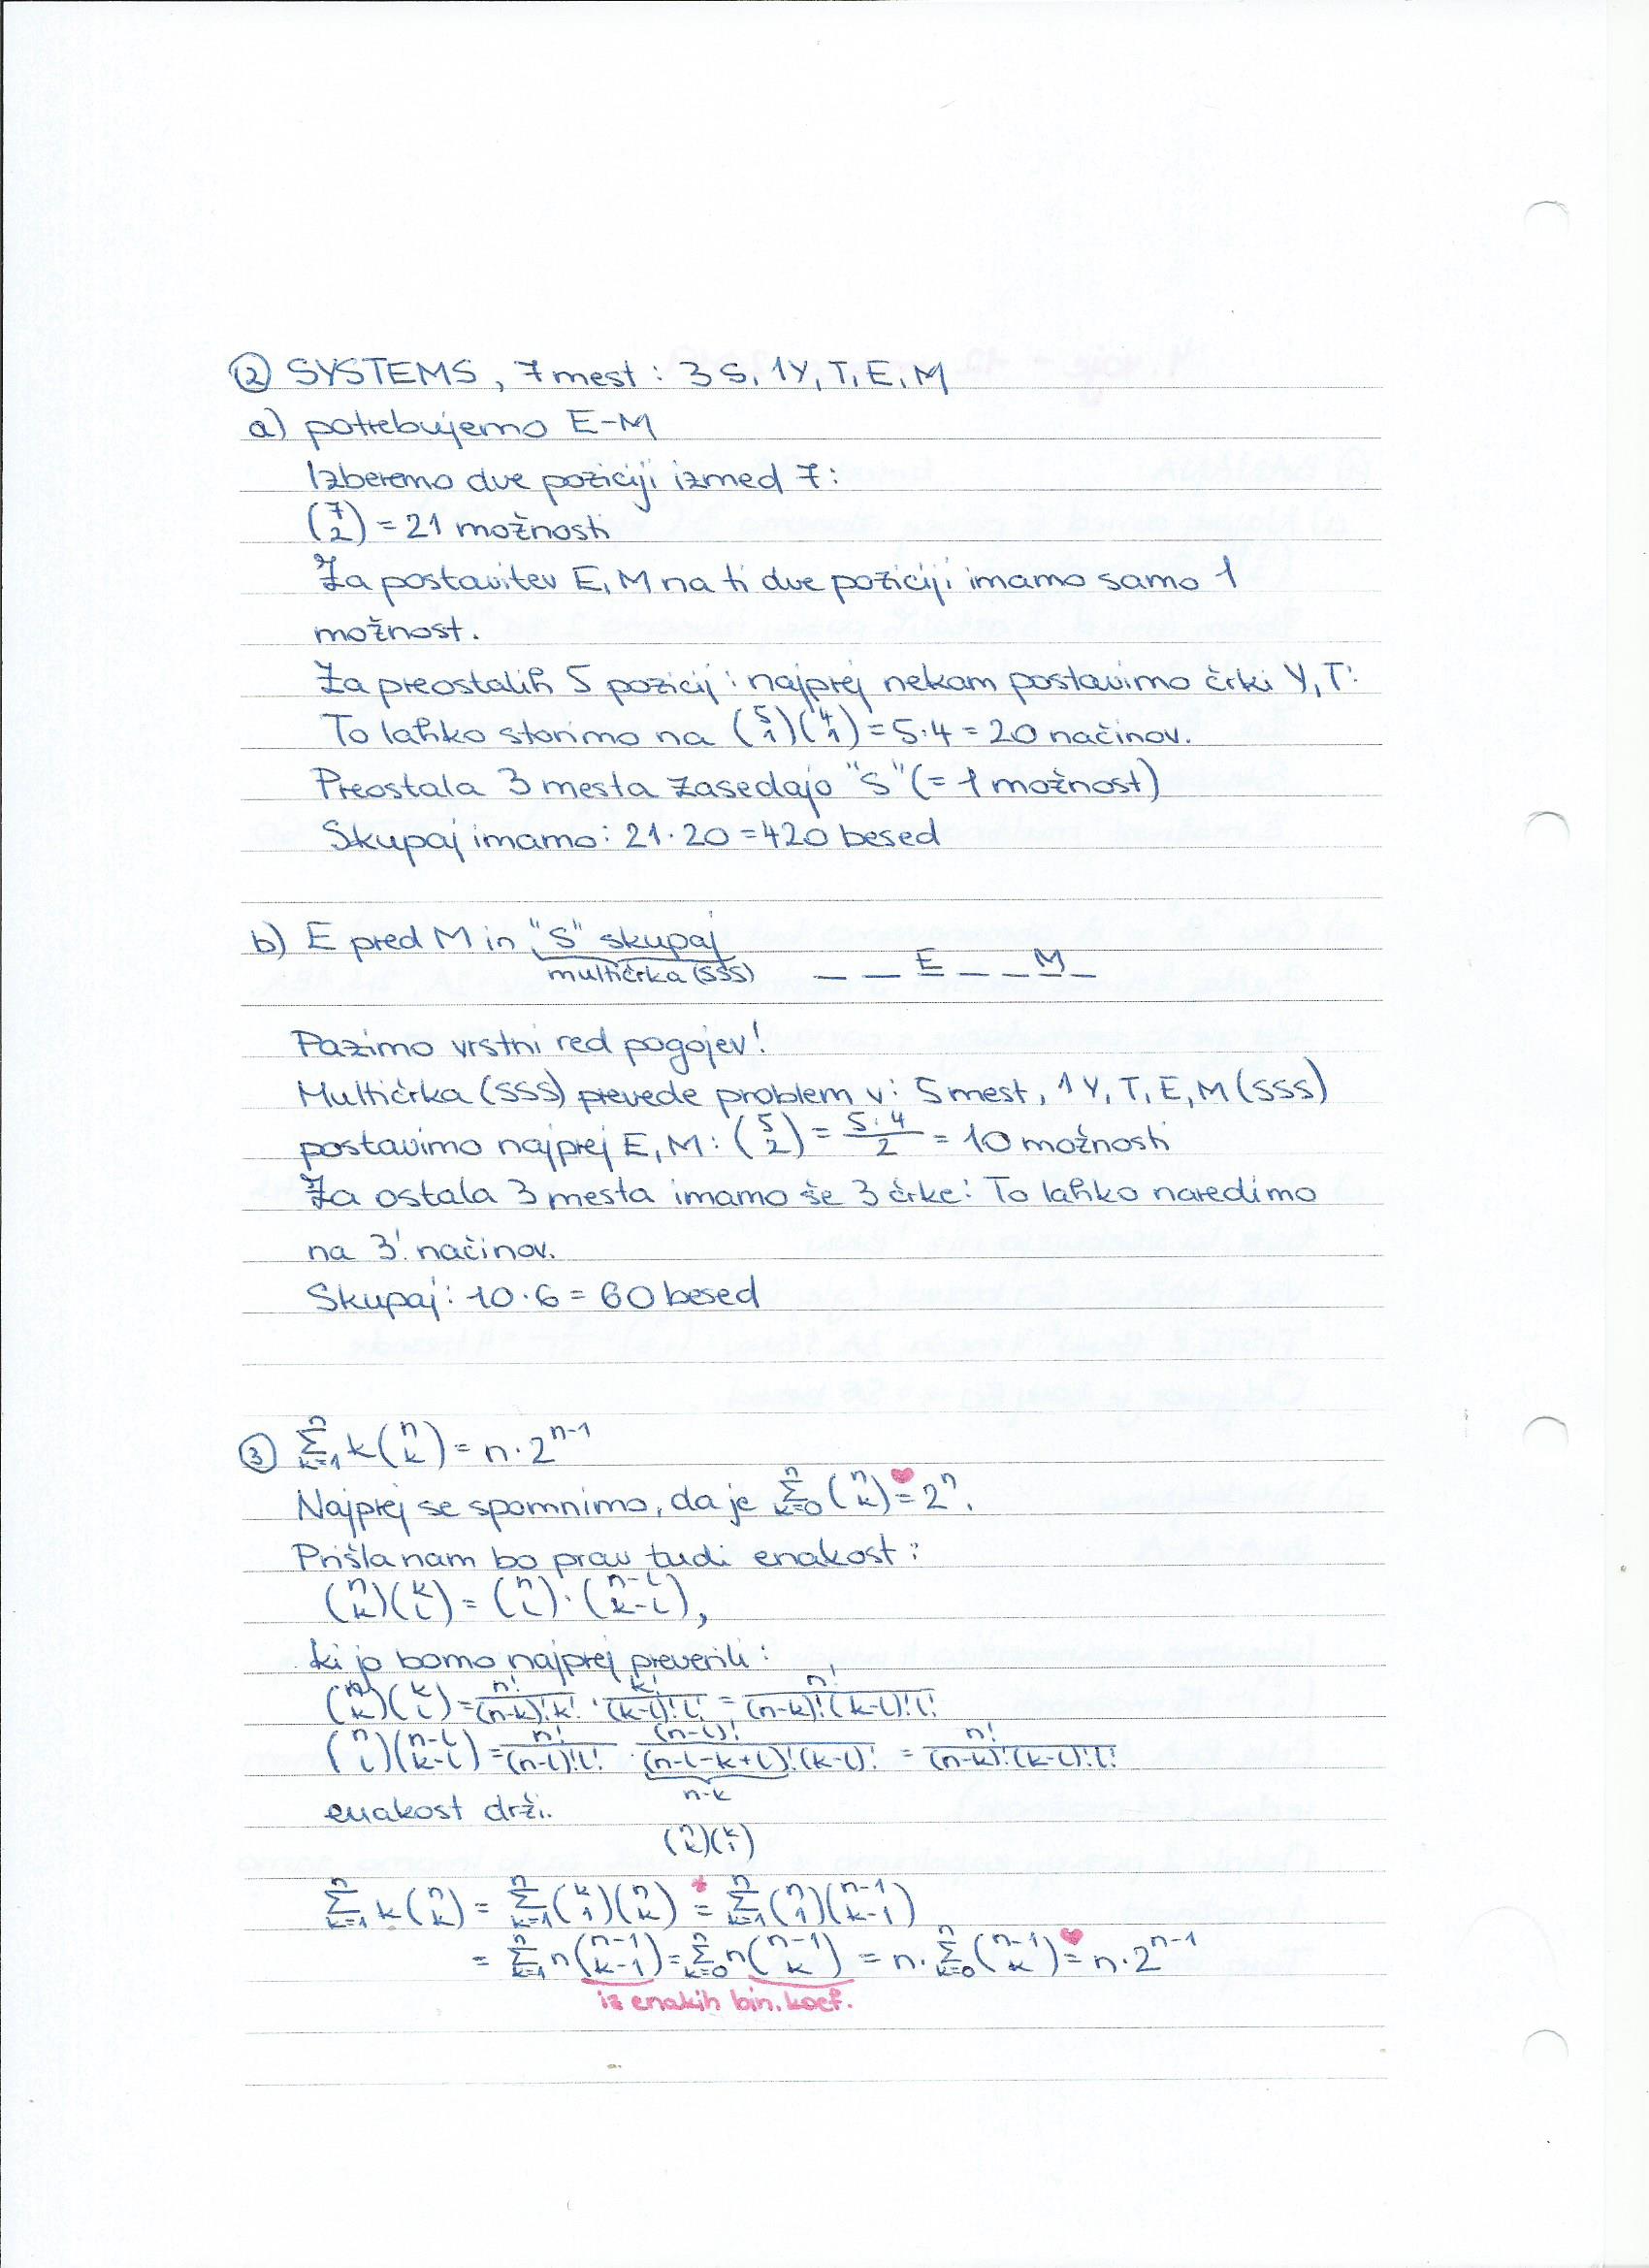 ② SYSTEMS, 7 mest: 3 S, 1Y, T, E, M
a) potrebujemo E-M
Izberemo dve poziciji izmed 7:
(7 2) = 21 možnosti
Za postavitev E, M na ti dve poziciji imamo samo 1
možnost.
Za preostalih 5 pozicij: najprej nekam postavimo črki Y, T:
To lahko storimo na (5 1)(4 1) = 5·4 = 20 načinov.
Preostala 3 mesta zasedajo "S" (= 1 možnost)
Skupaj imamo: 21·20 = 420 besed
b) E pred M in "S" skupaj
multičrka (SSS) _ _ E _ _ M _
Pazimo vrstni red pogojev!
Multičrka (SSS) prevede problem v: 5 mest, 1Y, T, E, M (SSS)
postavimo najprej E, M: (5 2) = 5·4/2 = 10 možnosti
Za ostala 3 mesta imamo še 3 črke: To lahko naredimo
na 3! načinov.
Skupaj: 10·6 = 60 besed
③ Σ_{k=1}^{n} k (n k) = n·2^{n-1}
Najprej se spomnimo, da je Σ_{k=0}^{n} (n k) =♥ 2^n.
Prišla nam bo prav tudi enakost:
(n k)(k l) = (n l)·(n-l k-l),
ki jo bomo najprej preverili:
(n k)(k l) = n!/((n-k)!k!) · k!/((k-l)!l!) = n!/((n-k)!(k-l)!l!)
(n l)(n-l k-l) = n!/((n-l)!l!) · (n-l)!/((n-l-k+l)!(k-l)!) = n!/((n-k)!(k-l)!l!)
n-k
enakost drži.
(n k)(k 1)
Σ_{k=1}^{n} k (n k) = Σ_{k=1}^{n} (k 1)(n k) =* Σ_{k=1}^{n} (n 1)(n-1 k-1)
= Σ_{k=1}^{n} n (n-1 k-1) = Σ_{k=0}^{n} n (n-1 k) = n·Σ_{k=0}^{n} (n-1 k) =♥ n·2^{n-1}
iz enakih bin. koef.